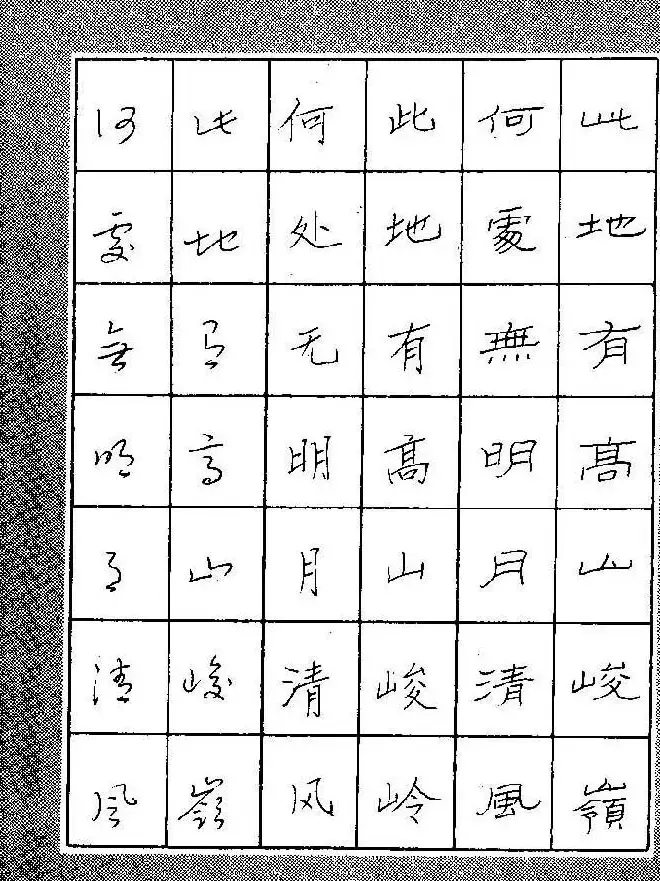 此地有高山峻嶺
何處無明月清風
此地有高山峻岭
何处无明月清风
此地有高山峻嶺
何處無明月清風